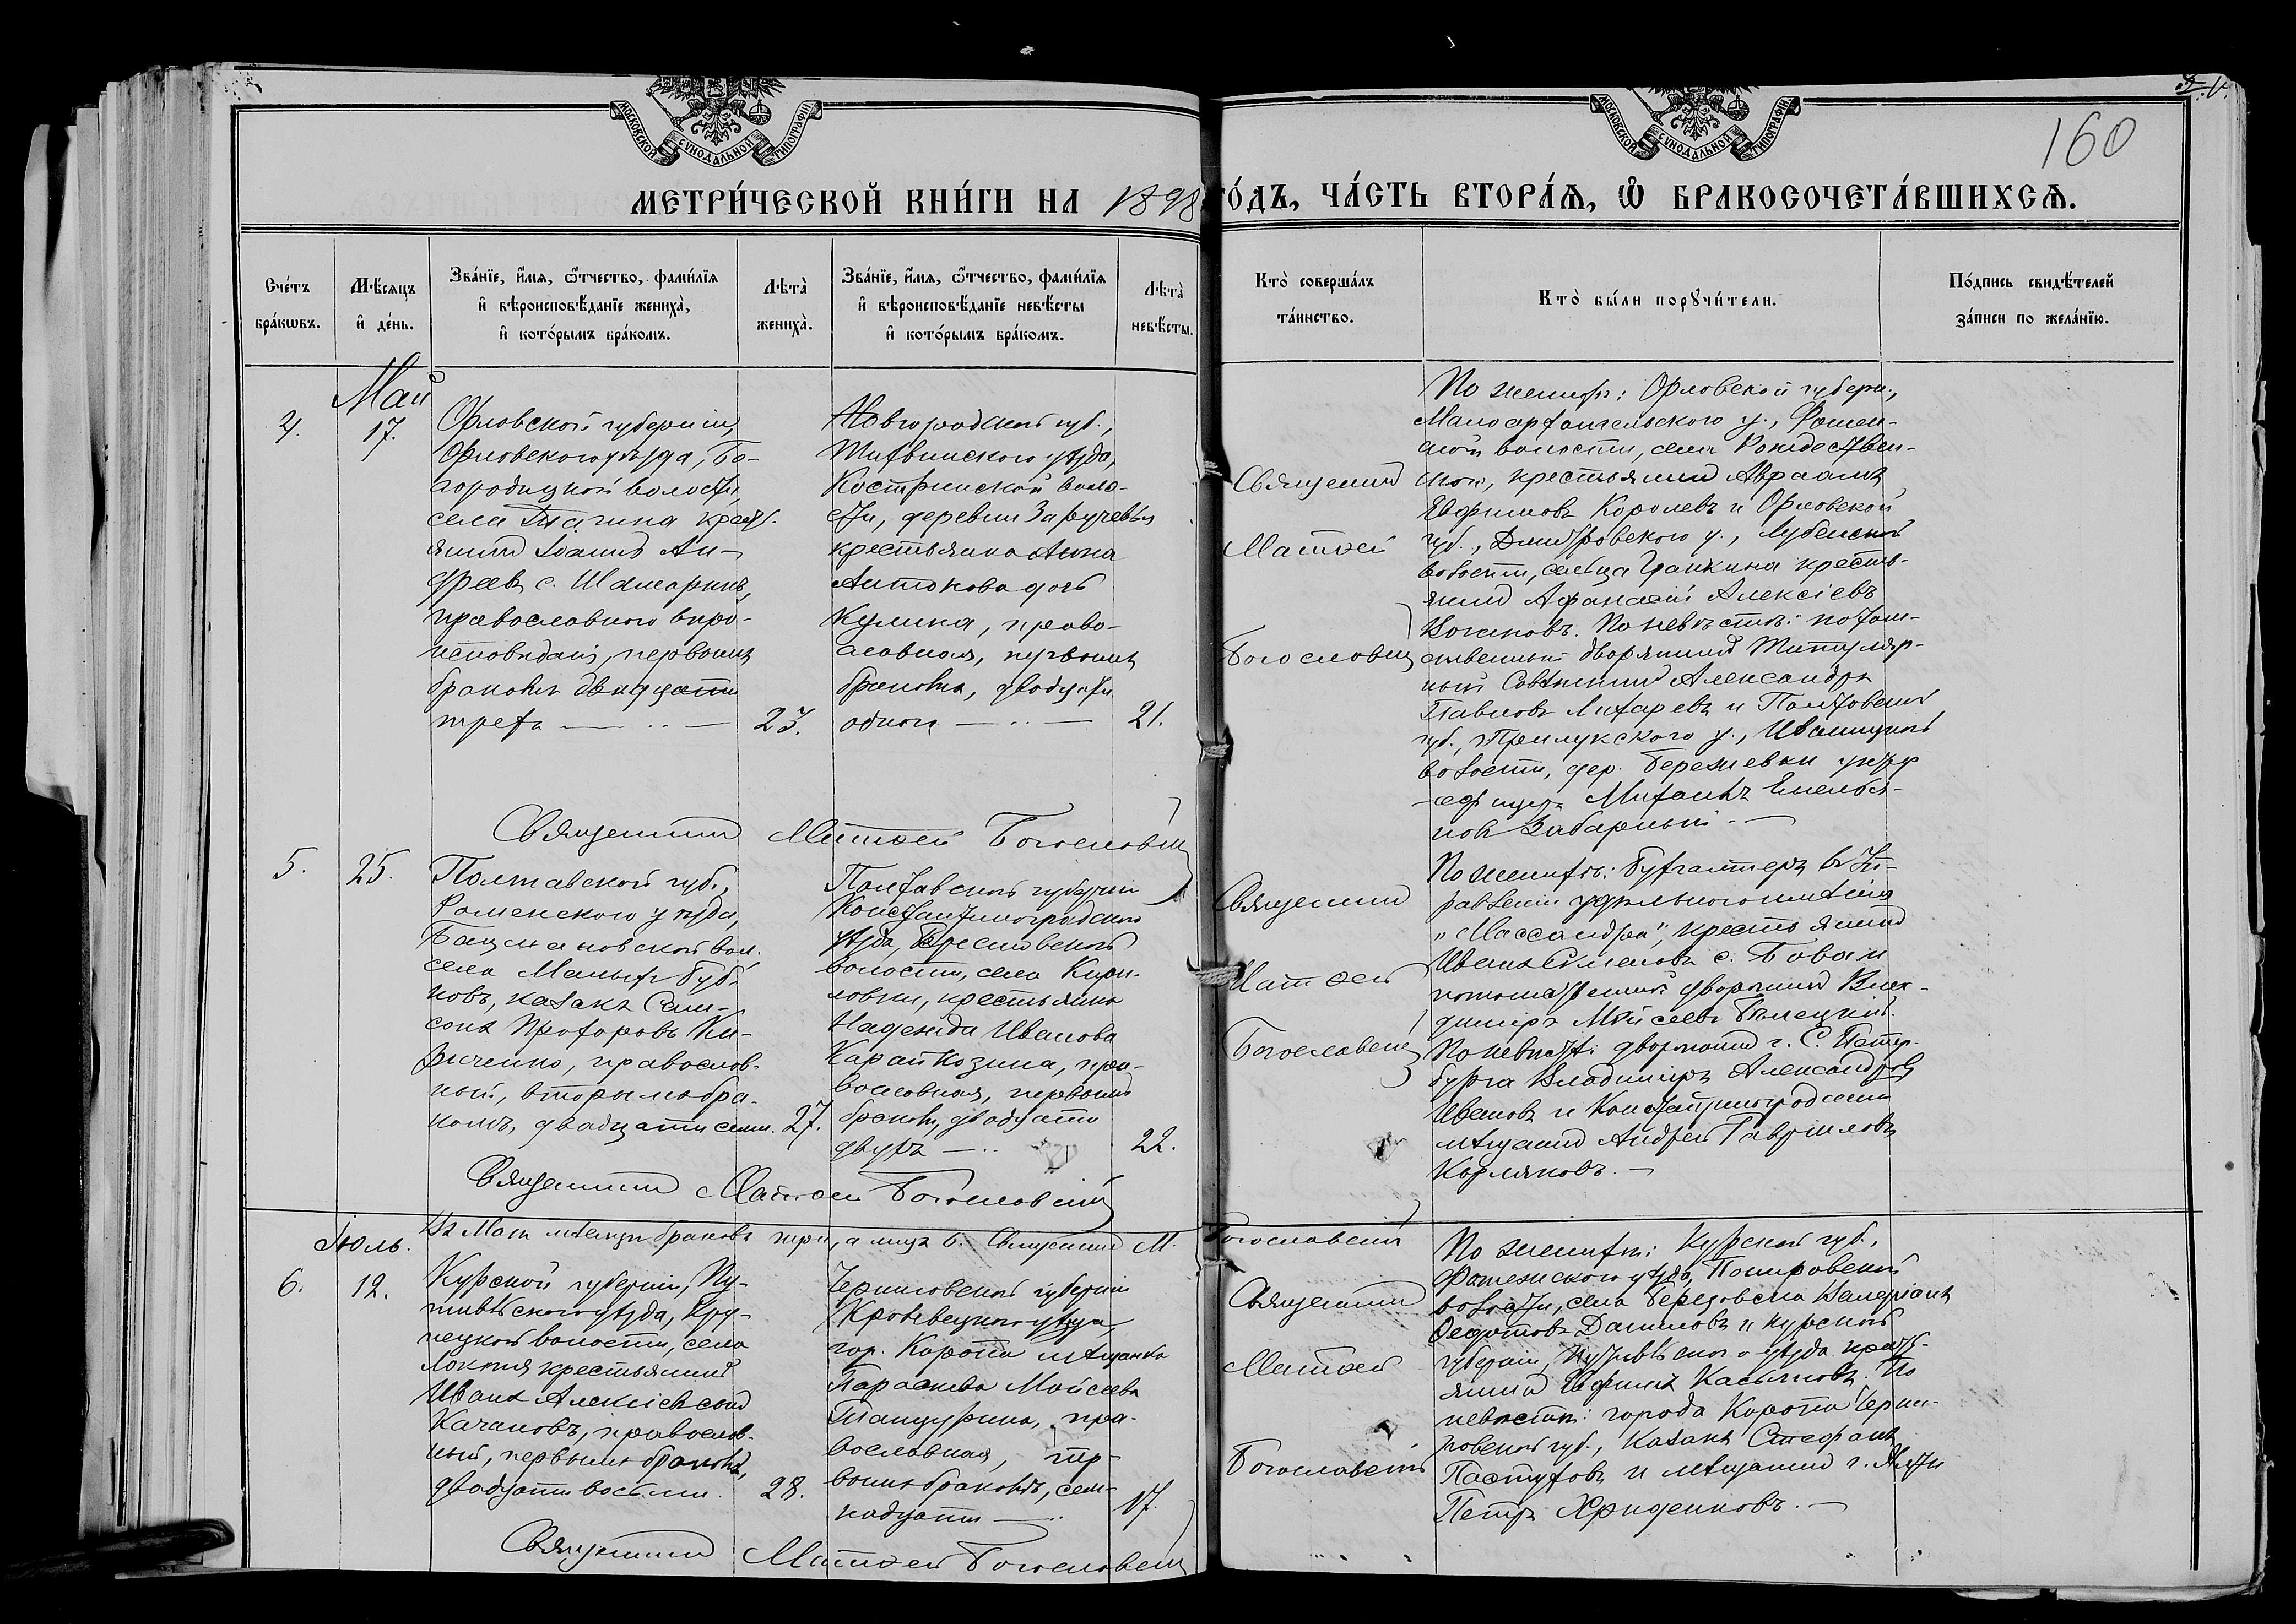 160
МОСКОВСКОЙ СѴНОДАЛЬНОЙ ТИПОГРАФІИ
МОСКОВСКОЙ СѴНОДАЛЬНОЙ ТИПОГРАФІИ
МЕТРИ́ЧЕСКОЙ КНИ́ГИ НА 1898 ГО́ДЪ, ЧА́СТЬ ВТОРА́Ѧ, Ѡ҆ БРАКОСОЧЕТА́ВШИХСѦ.
Сче́тъ
бра́кѡвъ.
Мѣ́сяцъ
и҆ де́нь.
Зва́нїе, и҆́мѧ, ѻ҆́тчество, фами́лїѧ
и҆ вѣроисповѣ́данїе жениха̀,
и҆ кото́рымъ бра́комъ.
Лѣта̀
жениха̀.
Зва́нїе, и҆́мѧ, ѻ҆́тчество, фами́лїѧ
и҆ вѣроисповѣ́данїе невѣ́сты
и҆ кото́рымъ бра́комъ.
Лѣта̀
невѣ́сты.
Кто̀ соверша́лъ
та́инство.
Кто̀ бы́ли порꙋчи́тели.
По́дпись свидѣ́телей
за́писи по жела́нїю.
Май
4.
17.
Орловской губерніи,
Орловского уѣзда, Бо-
городицкой волости
села Тагина крест.
янинъ Іоаннъ Ан-
дреевъ с. Шамаринъ,
православного вѣро-
исповѣданія, первымъ
бракомъ двадцати
трехъ
23.
Новгородской губ.,
Тихвинского уѣзда,
Костринской воло-
сти, деревни Заручевья
крестьянка Анна
Антонова дочь
Кулина, право-
славная, первымъ
бракомъ, двадцати
одного
21.
Священникъ
Матѳей
Богословскій
По женихѣ: Орловской губерн.,
Малоархангельского у.,
волости, села Рождествен-
ского, крестьянинъ Авраамъ
Ефимовъ Королевъ и Орловской
губ., Дмитровского у., Лубенской
волости, сельца Гранкина кресть-
янинъ Афанасій Алексіевъ
По невѣстѣ: потом-
ственный дворянинъ Титуляр-
ный Совѣтникъ Александръ
Павловъ Лихаревъ и Полтовской
губ., Прилукского у., Иваницкой
волости, дер. Бережевки
Михаилъ Емелья-
новъ Забарный.
Священникъ Матѳей Богословскій
5.
25.
Полтавской губ.,
Роменского уѣзда,
вол.
села Малыхъ Буб-
новъ, казакъ Сам-
сонъ Прохоровъ Ки-
риченко, православ-
ный, вторымъ бра-
комъ, двадцати семи.
27.
Полтавской губерніи
Константиноградского
уѣзда, Берестовской
волости, села Кири-
ловки, крестьянка
Надежда Иванова
Карапкозина, пра-
вославная, первымъ
бракомъ, двадцати
двухъ
22.
Священникъ
Матѳей
Богословскій
По женихѣ: бухгалтеръ въ Уп-
равленіи удѣльного имѣнія
„Массандра“, крестьянинъ
Иванъ Симеоновъ с. Бабакъ и
потомственный дворянинъ Вла-
диміръ Мойсеевъ Билецкій.
По невѣстѣ: дворянинъ г. С. Петер-
бурга Владиміръ Александровъ
Ивановъ и Константиноградскій
мѣщанинъ Андрей Гавриловъ
Корляковъ.
Священникъ Матѳей Богословскій
Въ Маѣ мѣсяцѣ браковъ три, а лицъ 6. Священникъ М. Богословскій
Іюль.
6.
12.
Курской губерніи, Пу-
тивльского уѣзда, Кру-
пецкой волости, села
Локтя крестьянинъ
Иванъ Алексіевъ сынъ
Качановъ, православ-
ный, первымъ бракомъ,
двадцати восьми.
28.
Черниговской губерніи
Кролевецкого уѣзда,
гор. Коропа мѣщанка
Параскева Мойсеева
Танцурина, пра-
вославная, пер-
вымъ бракомъ, сем-
надцати
17.
Священникъ
Матѳей
Богословскій
По женихѣ: Курской губ.,
Фатежского уѣзда, Поныровской
волости, села Березовска Валеріанъ
Ѳедотовъ Даниловъ и Курской
губерніи, Путивльского уѣзда крест-
янинъ Ефимъ Касьяновъ. По
невѣстѣ: города Коропа Черни-
говской губ., казакъ Стефанъ
Пастуховъ и мѣщанинъ г. Ялты
Петръ Хриценковъ.
Священникъ Матѳей Богословскій